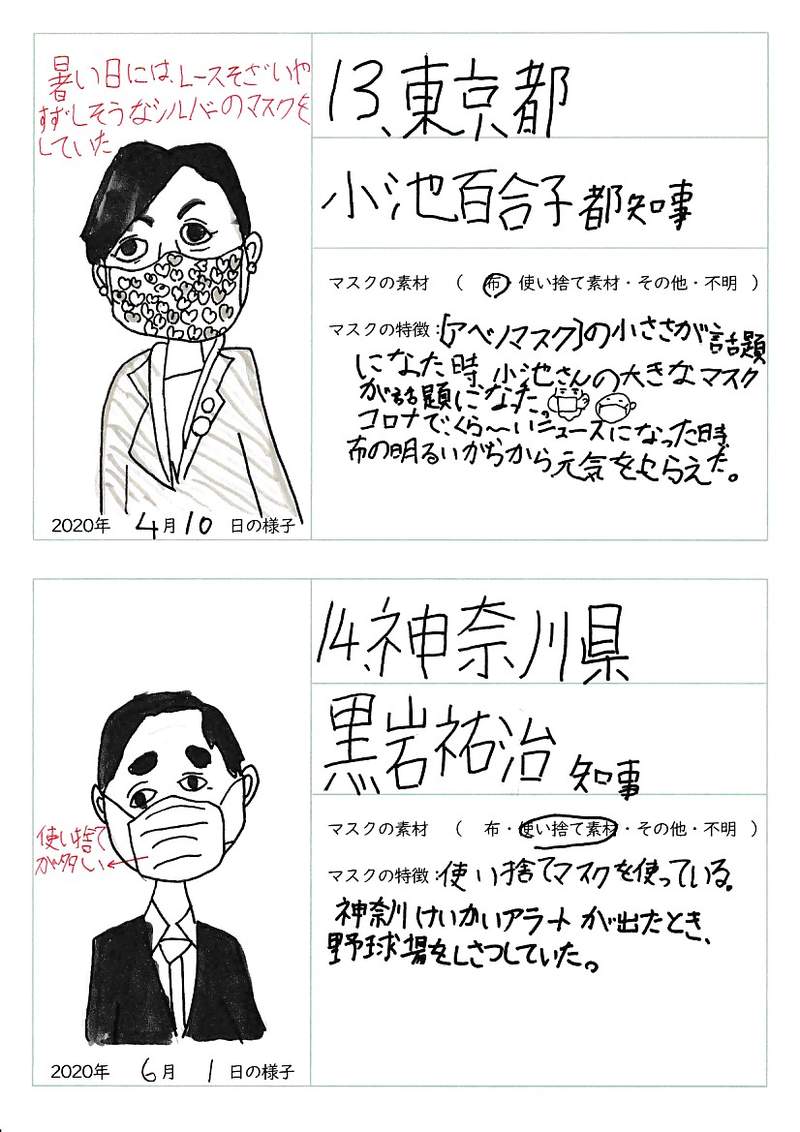 暑い日には、レースそざいや
すずしそうなシルバーのマスクを
していた
13、東京都
小池百合子 都知事
マスクの素材 ( 布・使い捨て素材・その他・不明 )
マスクの特徴：[アベノマスク]の小ささが話題
になった時 小池さんの大きなマスク
が話題になった。
コロナで、くら〜いニュースになった時、
布の明るいがらから元気をもらえた。
2020年 4月10日の様子
14、神奈川県
黒岩祐治 知事
マスクの素材 ( 布・使い捨て素材・その他・不明 )
使い捨て
が多い
マスクの特徴：使い捨てマスクを使っている。
神奈川けいかいアラートが出たとき、
野球場をしさつしていた。
2020年 6月 1日の様子